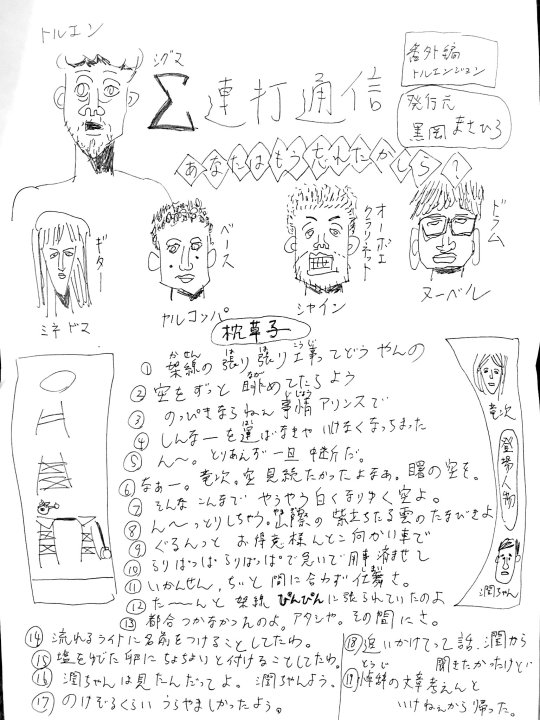 トルエン
シグマ
Σ連打通信
番外編
トルエンジョン
発行元
黒岡まさひろ
あなたはもう忘れたかしら?
ギター
ミネドス
ベース
ヤルコンパ
オーボエ
クラリネット
シャイン
ドラム
ヌーベル
枕草子
かせん は は こうじ
①架線の張り張り工事ってどうやんの
なが
②空をずっと眺めてたらよう
じじょう
③のっぴきならねぇ事情アリンスで
はこ
④しんなーを運ばなきゃいけなくなっちまった
⑤ん〜。とりあんず一旦中断だ。
⑥なぁー。竜次。空見続たかったよなぁ。曙の空を。
⑦そんなこんまで やうやう白くなりゆく空よ。
⑧ん〜っとりしちゃう。山際の紫立ちたる雲のたなびきよ
⑨ぐるんっと お得意様んとこ向かい車で
⑩ろりはっぱろりはっぱで急いで用事済ませし
しまい
⑪いかんせん、ちぃと間に合わず仕舞さ。
⑫た〜〜んと 架線 ぴんぴんに張られていたのよ
⑬都合つかなかっんのよ。アタシャ。その間にさ。
⑭流れるライトに名前をつけることしてたわ。
⑮塩をゆでた卵にちょちょいと付けることしてたわ。
⑯潤ちゃんは見たんだってよ。潤ちゃんよう。
⑰のけぞるくらいうらやましかったよぅ。
⑱追いかけてって話、潤から
聞きたかったけど
とうじ
⑲悼辞の文章考えんと
いけねぇから帰った。
竜次
登場人物
潤ちゃん